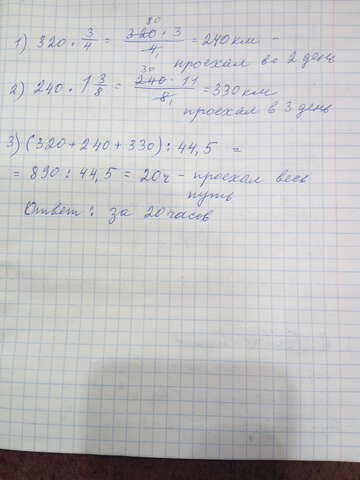 1) 320 · 3/4 = 320 · 3 / 4 = 240 км -
80
1
проехал во 2 день
2) 240 · 1 3/8 = 240 · 11 / 8 = 330 км
30
1
проехал в 3 день
3) (320 + 240 + 330) : 44,5 =
= 890 : 44,5 = 20 ч - проехал весь
путь
Ответ: за 20 часов